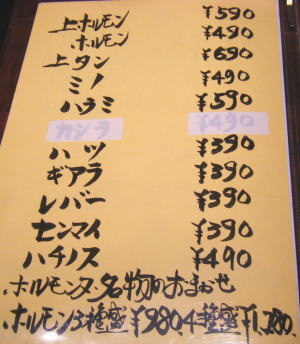 上ホルモン ¥590
ホルモン ¥490
上タン ¥690
ミノ ¥490
ハラミ ¥590
カシラ ¥490
ハツ ¥390
ギアラ ¥390
レバー ¥390
センマイ ¥390
ハチノス ¥490
ホルモンヌ名物のおまかせ
ホルモン3種盛¥980 4種盛¥1,780